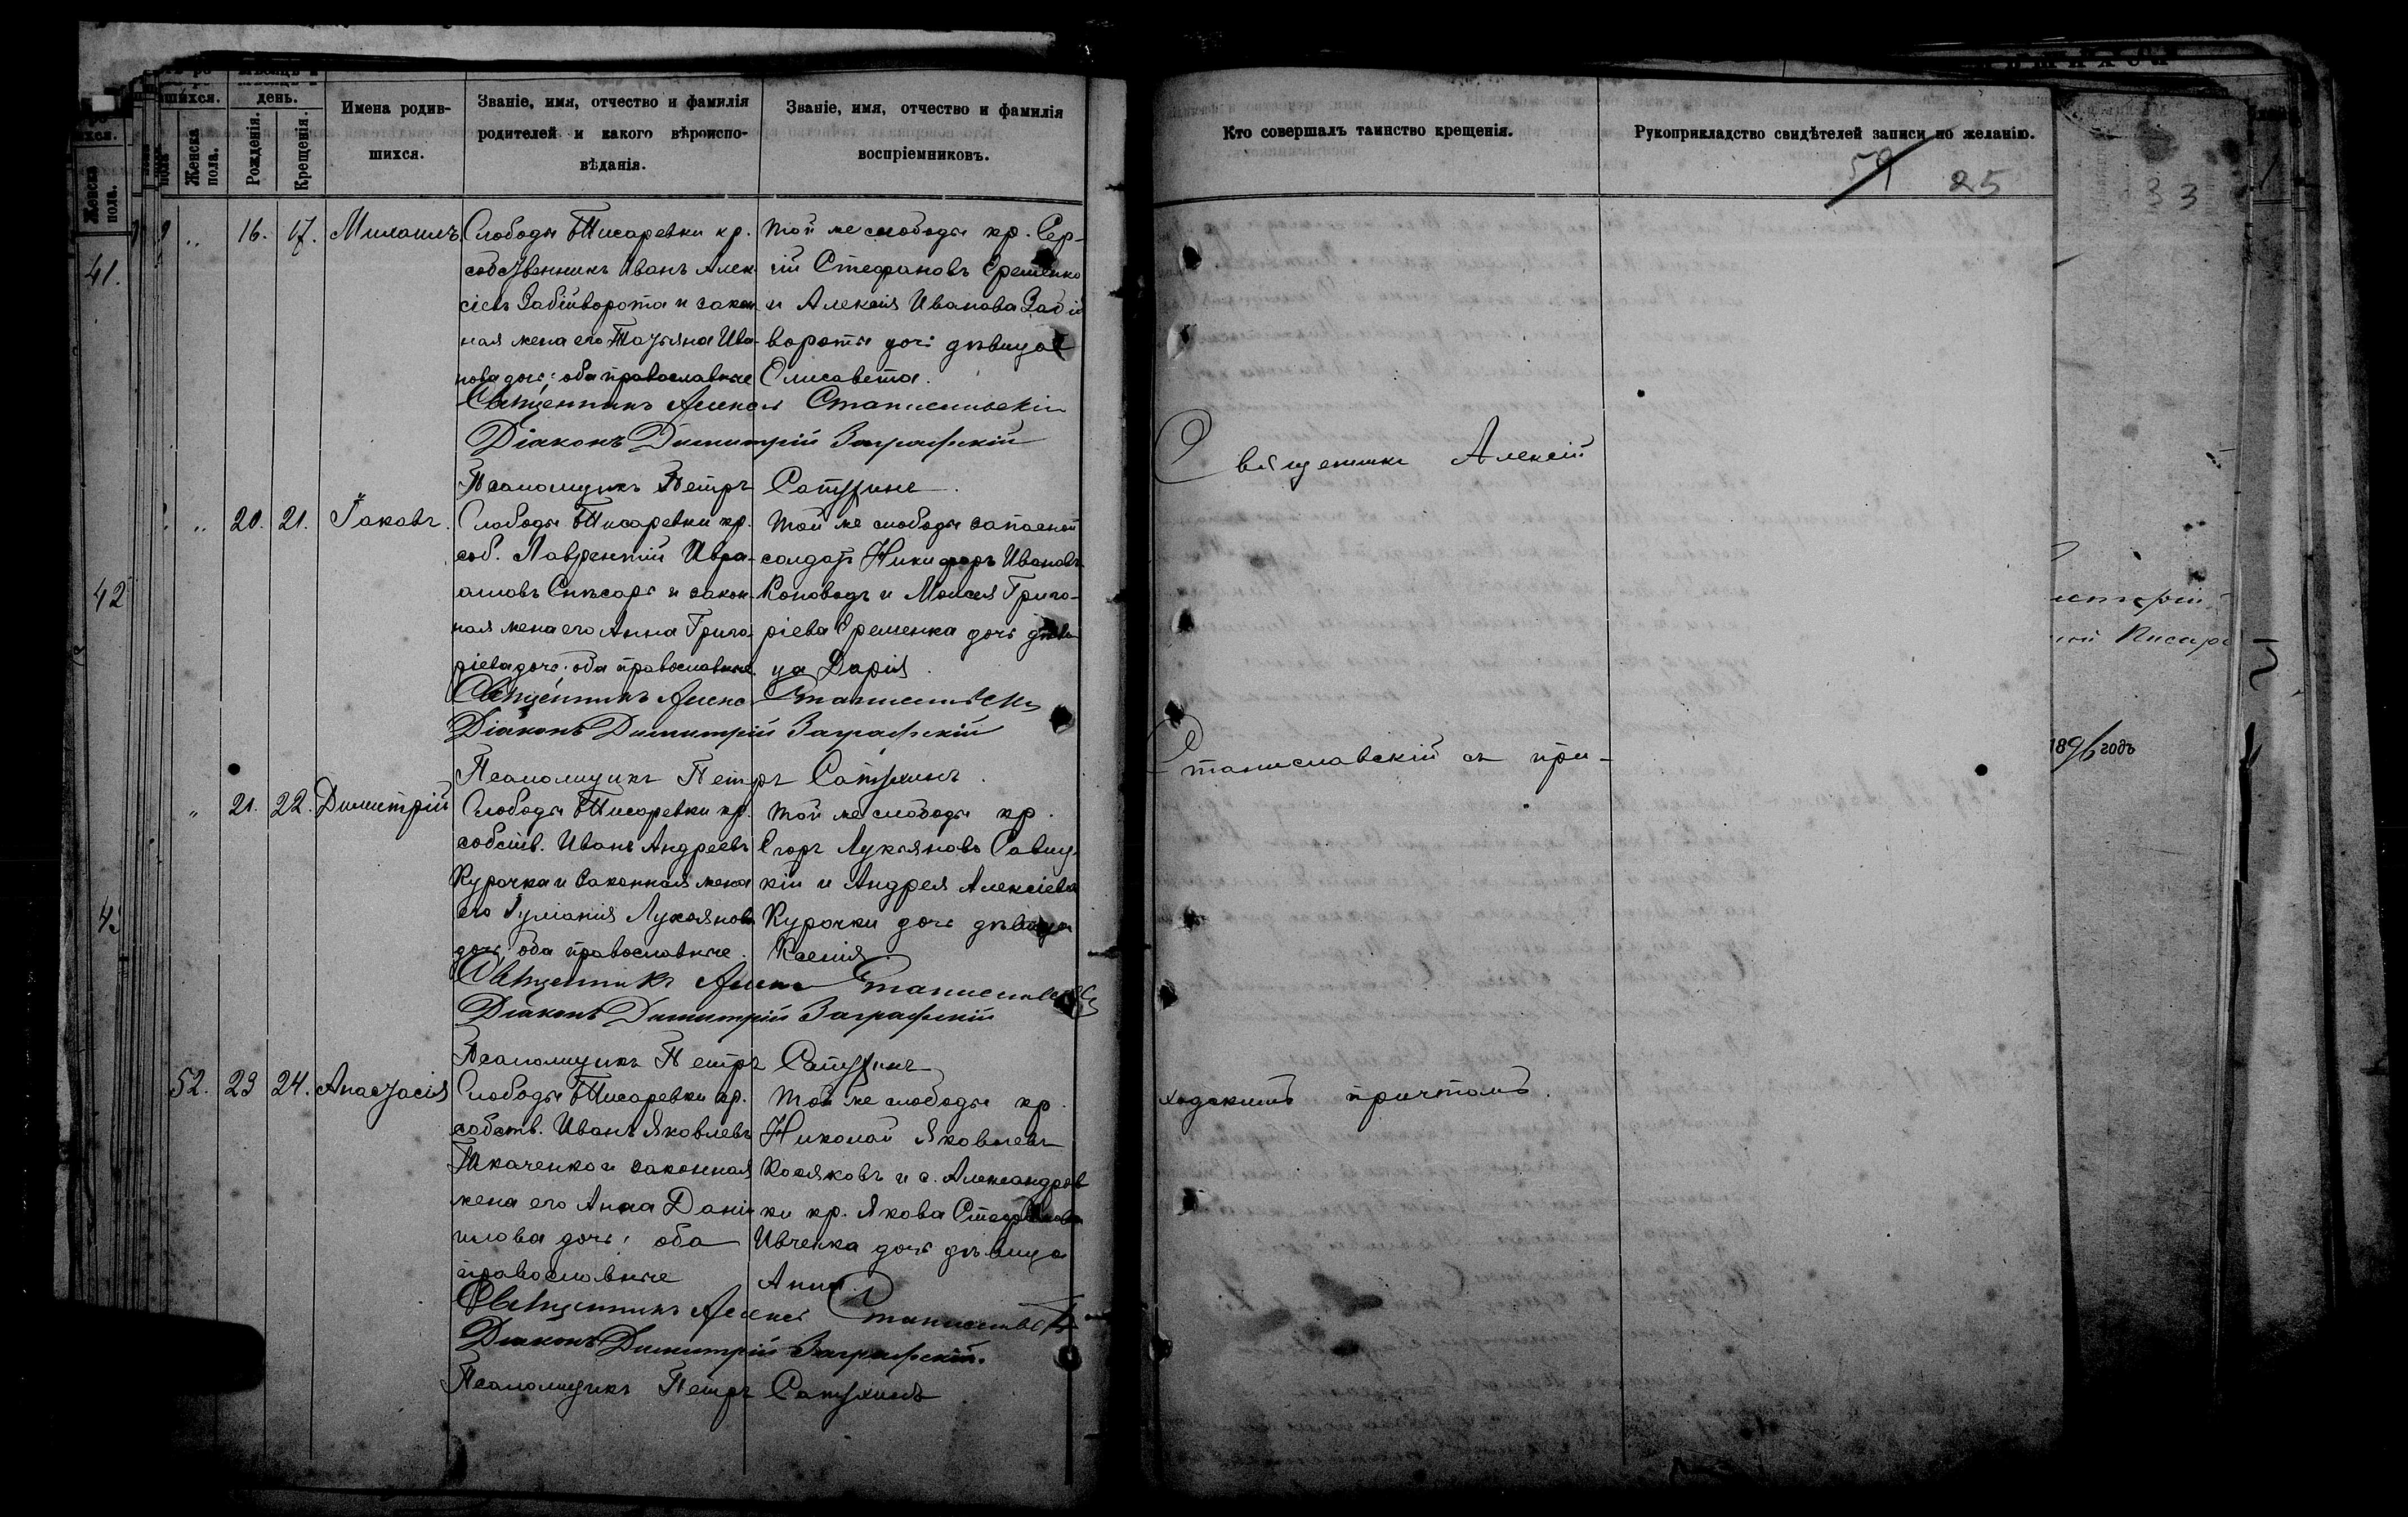 шихся.
день.
Женска
пола.
Рожденія.
Крещенія.
Имена родив-
шихся.
Званіе, имя, отчество и фамилія
родителей и какого вѣроиспо-
вѣданія.
Званіе, имя, отчество и фамилія
воспріемниковъ.
Кто совершалъ таинство крещенія.
Рукоприкладство свидѣтелей записи по желанію.
59 25
33
Женска
пола.
41.
42
16. 17. Михаилъ
Слободы Писаревки кр.
собственникъ Иванъ Алек
сіевъ Забійворота и закон
ная жена его Татьяна Ива-
нова дочь; оба православные
Той же слободы кр. Сер-
гій Стефановъ Еременко
и Алексія Иванова Забій
вороты дочь дѣвица
Елисавета.
Священникъ Алексій Станиславскій
Діаконъ Димитрій Заграфскій
Псаломщикъ Петръ
20. 21. Іаковъ.
Слободы Писаревки кр.
соб. Лаврентій Авра-
амовъ Слѣсарь и закон-
ная жена его Анна Григо
ріева дочь; оба православные.
Той же слободы запасной
солдатъ Никифоръ Ивановъ
Коноводъ и Моисея Григо-
ріева Еременка дочь дѣви
ца Дарія.
Священникъ Алексій Станиславскій
Діаконъ Димитрій Заграфскій
Псаломщикъ Петръ
21. 22. Димитрій
Слободы Писаревки кр.
собств. Иванъ Андреевъ
Курочка и законная жена
его Іуліанія Лукьянова
дочь; оба православные.
Той же слободы кр.
Егоръ Лукьяновъ Савиц-
кій и Андрея Алексіева
Курочки дочь дѣвица
Ксенія.
Священникъ Алексій Станиславскій
Діаконъ Димитрій Заграфскій
Псаломщикъ Петръ
52. 23 24. Анастасія
Слободы Писаревки кр.
собств. Иванъ Яковлевъ
Ткаченко и законная
жена его Анна Даніи
лова дочь; оба
православные
Той же слободы кр.
Николай Яковлевъ
Косяковъ и с. Александров
ки кр. Якова Стефанова
Ивченка дочь дѣвица
Анна.
Священникъ Алексій Станиславскій
Діаконъ Димитрій Заграфскій.
Псаломщикъ Петръ
Священникъ Алексій
Станиславскій съ при-
ходскимъ причтомъ.
1896 годъ